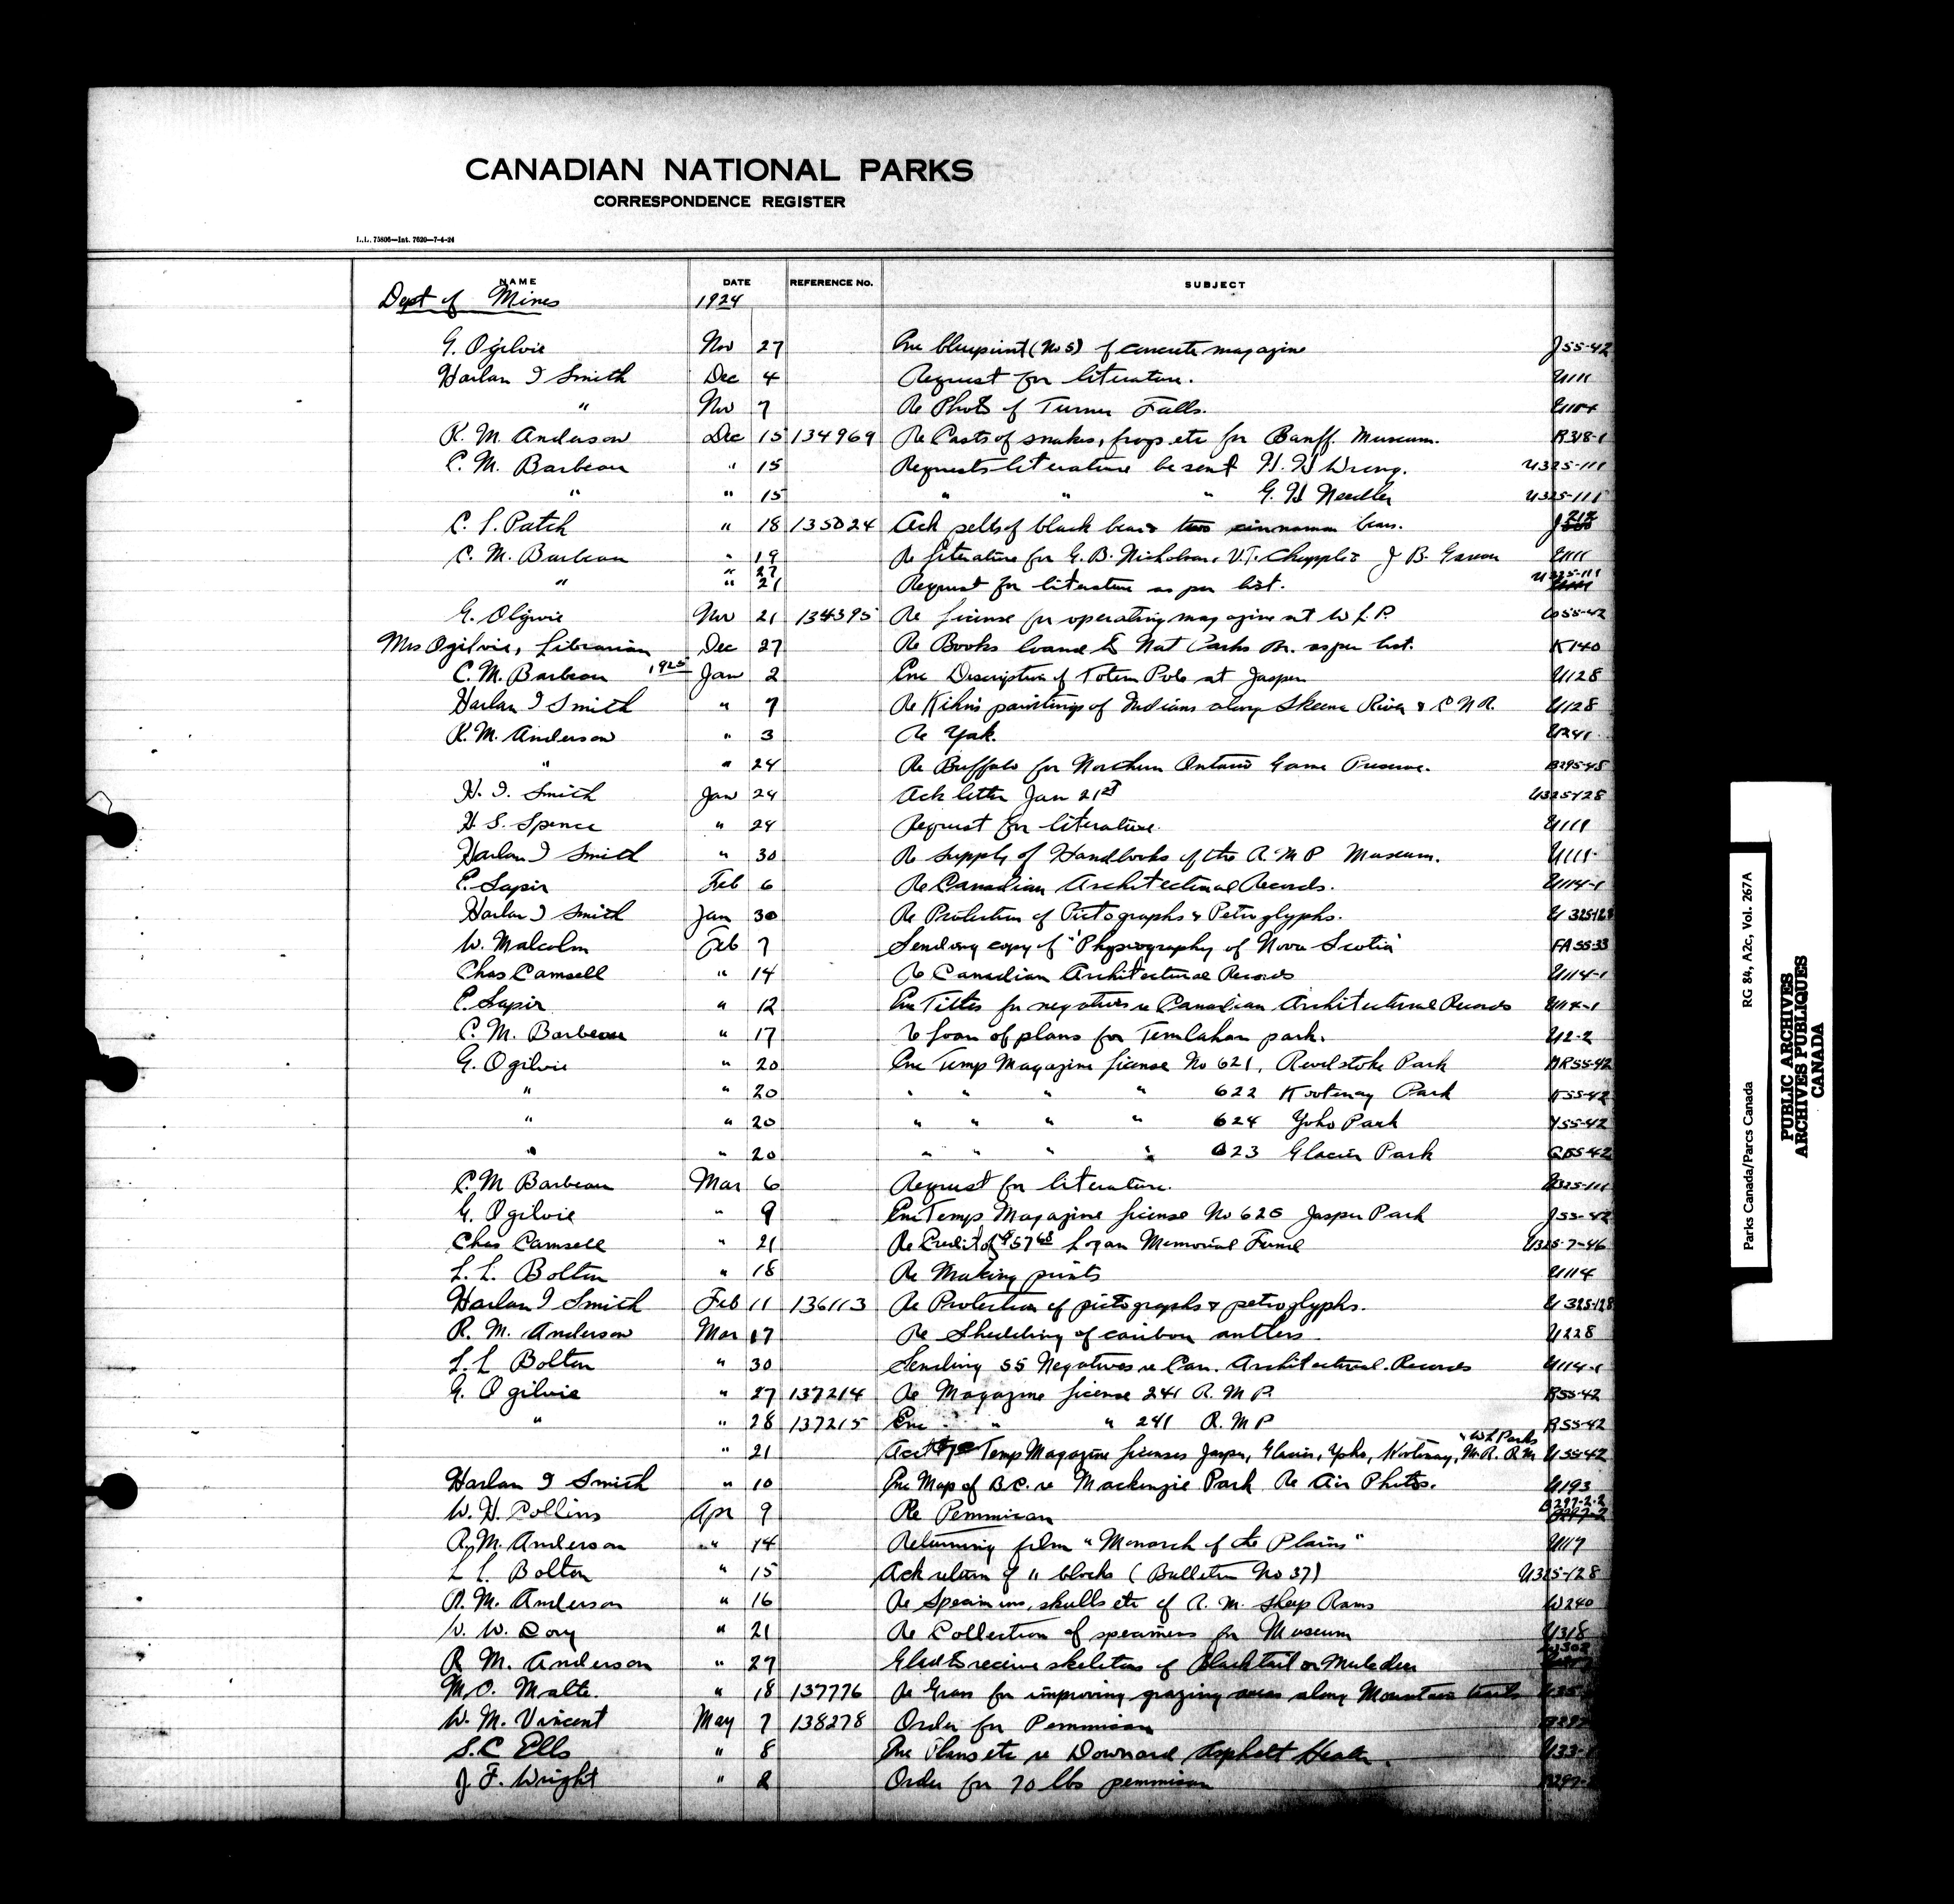 CANADIAN NATIONAL PARKS
CORRESPONDENCE REGISTER
L.L. 75806—Int. 7620—7-4-24
NAME DATE REFERENCE No. SUBJECT
Dept of Mines 1924
G. Ogilvie Nov 27 Enc blueprint (No 5) of concrete magazine J55-42
Harlan I Smith Dec 4 Request for literature. U111
" Nov 7 Re Photo of Turner Falls.
R. M. Anderson Dec 15 134969 Re Casts of snakes, frogs etc for Banff Museum. R318-1
C. M. Barbeau " 15 Requests literature be sent H. H Wrong. U325-111
" " 15 " " " G. H Needler U325-111
C. L. Patch " 18 135024 Ack pelts of black bear & two cinnamon bears. J 212
C. M. Barbeau " 19 Re literature for G. B. Nicholson, V.T. Chapple & J B. U111
" 27
" " 21 Request for literature as per list. U325-111
G. Olgivie Nov 21 134395 Re license for operating magazine at W L P. 55-42
Mrs Ogilvie, Librarian Dec 27 Re Books loaned to Nat Parks Br. as per list. K140
C. M. Barbeau 1925 Jan 2 Enc Description of Totem Pole at Jasper U128
Harlan I Smith " 7 Re Kihn's paintings of Indians along Skeena River & C N R. U128
R. M. Anderson " 3 Re Yak. U241
" " 24 Re Buffalo for Northern Ontario Game Preserve. B295-45
H. I. Smith Jan 24 Ack letter Jan 21st U325-128
H. S. Spence " 24 Request for literature. U111
Harlan I Smith " 30 Re supply of Handbooks of the R. M P Museum. U111
E. Sapir Feb 6 Re Canadian Architectural Records. U114-1
Harlan I Smith Jan 30 Re Protection of Pictographs & Petroglyphs. U 325-128
W. Malcolm Feb 7 Sending copy of "Physiography of Nova Scotia" FA 55-33
Chas Camsell " 14 Re Canadian Architectural Records U114-1
E. Sapir " 12 Enc Titles for negatives re Canadian Architectural Records U114-1
C. M. Barbeau " 17 Re loan of plans for Temlaham park. U2-2
G. Ogilvie " 20 Enc Temp Magazine license No 621, Revelstoke Park MR55-42
" " 20 " " " " 622 Kootenay Park K55-42
" " 20 " " " " 624 Yoho Park Y55-42
" " 20 " " " " 623 Glacier Park G55-42
C. M Barbeau Mar 6 Request for literature. U325-111
G. Ogilvie " 9 Enc Temp Magazine license No 626 Jasper Park J55-42
Chas Camsell " 21 Re Credit of $57 48 Logan Memorial Fund U325-7-46
L. L. Bolton " 18 Re Making prints U114
Harlan I Smith Feb 11 136113 Re Protection of pictographs & petroglyphs. U 325-128
R. M. Anderson Mar 17 Re Shedding of caribou antlers U228
L. L Bolton " 30 Sending 55 Negatives re Can. Architectural Records U114-1
G. Ogilvie " 27 137214 Re Magazine license 241 R. M P. R55-42
" " 28 137215 Enc " " 241 R. M P R55-42
& W L Parks
" 21 Temp Magazine licenses Jasper, Glacier, Yoho, Kootenay, M. R. R M U 55-42
Harlan I Smith " 10 Enc Map of B C. re Mackenzie Park Re Air Photos. U193
W. H. Collins Apr 9 Re Pemmican B297-2-2
R. M. Anderson " 14 Returning film "Monarch of the Plains" U117
L L. Bolton " 15 Ack return of 11 blocks (Bulletin No 37) U325-128
R. M. Anderson " 16 Re Specimens, skulls etc of R. M. Sheep Rams W240
W. W. Dory " 21 Re Collection of specimens for Museum U318
R M. Anderson " 27 Glad to receive skeletons of Blacktail or Mule deer
M. O. Malte. " 18 137776 Re Grass for improving grazing areas along Mountain trails
W. M. Vincent May 7 138278 Order for Pemmican
S. C Ells " 8 Enc Plans etc re Downard Asphalt Heater. U33-1
J F. Wright " 2 Order for 70 lbs pemmican
Parks Canada/Parcs Canada RG 84, A2c, Vol. 267A
PUBLIC ARCHIVES
ARCHIVES PUBLIQUES
CANADA